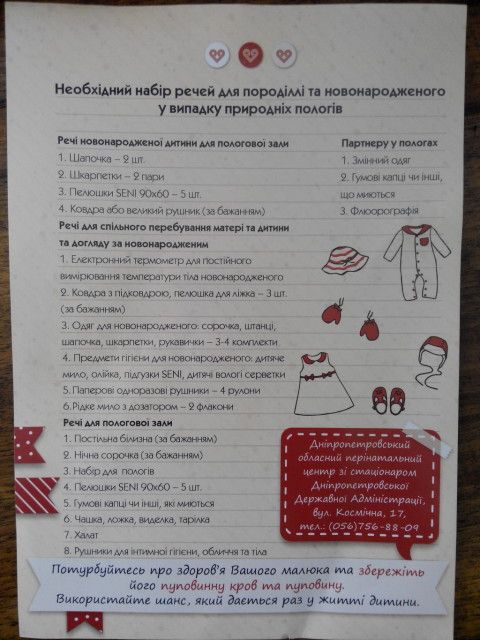 Необхідний набір речей для породіллі та новонародженого
у випадку природніх пологів
Речі новонародженої дитини для пологової зали
1. Шапочка – 2 шт.
2. Шкарпетки – 2 пари
3. Пелюшки SENI 90х60 – 5 шт.
4. Ковдра або великий рушник (за бажанням)
Партнеру у пологах
1. Змінний одяг
2. Гумові капці чи інші,
що миються
3. Флюорографія
Речі для спільного перебування матері та дитини
та догляду за новонародженим
1. Електронний термометр для постійного
вимірювання температури тіла новонародженого
2. Ковдра з підковдрою, пелюшка для ліжка – 3 шт.
(за бажанням)
3. Одяг для новонародженого: сорочка, штанці,
шапочка, шкарпетки, рукавички – 3-4 комплекти
4. Предмети гігієни для новонародженого: дитяче
мило, олійка, підгузки SENI, дитячі вологі серветки
5. Паперові одноразові рушники – 4 рулони
6. Рідке мило з дозатором – 2 флакони
Речі для пологової зали
1. Постільна білизна (за бажанням)
2. Нічна сорочка (за бажанням)
3. Набір для пологів
4. Пелюшки SENI 90х60 – 5 шт.
5. Гумові капці чи інші, які миються
6. Чашка, ложка, виделка, тарілка
7. Халат
8. Рушники для інтимної гігієни, обличчя та тіла
Дніпропетровський
обласний перінатальний
центр зі стаціонаром
Дніпропетровської
Державної Адміністрації,
вул. Космічна, 17,
тел.: (056)756-88-09
Потурбуйтесь про здоров'я Вашого малюка та збережіть
його пуповинну кров та пуповину.
Використайте шанс, який дається раз у житті дитини.